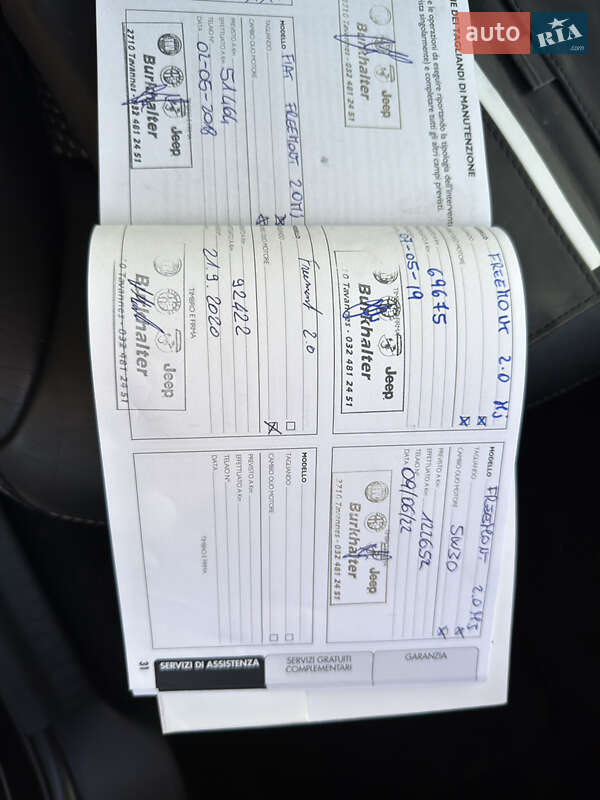 auto RIA.com
E DEI TAGLIANDI DI MANUTENZIONE
e le operazioni da eseguire riportando la tipologia dell'intervento
singolarmente) e completare tutti gli altri campi previsti.
Jeep
2710 Tavannes - 032 481 24 51
MODELLO FIAT FREEMONT 2.0 MJ
TAGLIANDO
CAMBIO OLIO MOTORE
PREVISTO A Km
EFFETTUATO A Km 51464
TELAIO N°
DATA 02-05-2018
Burkhalter
Jeep
2710 Tavannes - 032 481 24 51
FREEMONT 2.0 MJ
69675
07-05-19
TIMBRO E FIRMA
Burkhalter
Jeep
0 Tavannes - 032 481 24 51
Freemont 2.0
PREVISTO A Km
EFFETTUATO A Km 92122
21.9.2020
TIMBRO E FIRMA
Burkhalter
Jeep
0 Tavannes - 032 481 24 51
MODELLO FREEMONT 2.0 MJ
TAGLIANDO
CAMBIO OLIO MOTORE 5W30
PREVISTO A Km
EFFETTUATO A Km 122652
TELAIO N°
DATA 09/06/22
Burkhalter
Jeep
2710 Tavannes - 032 481 24 51
MODELLO
TAGLIANDO
CAMBIO OLIO MOTORE
PREVISTO A Km
EFFETTUATO A Km
TELAIO N°
DATA
TIMBRO E FIRMA
31
SERVIZI DI ASSISTENZA
SERVIZI GRATUITI
COMPLEMENTARI
GARANZIA